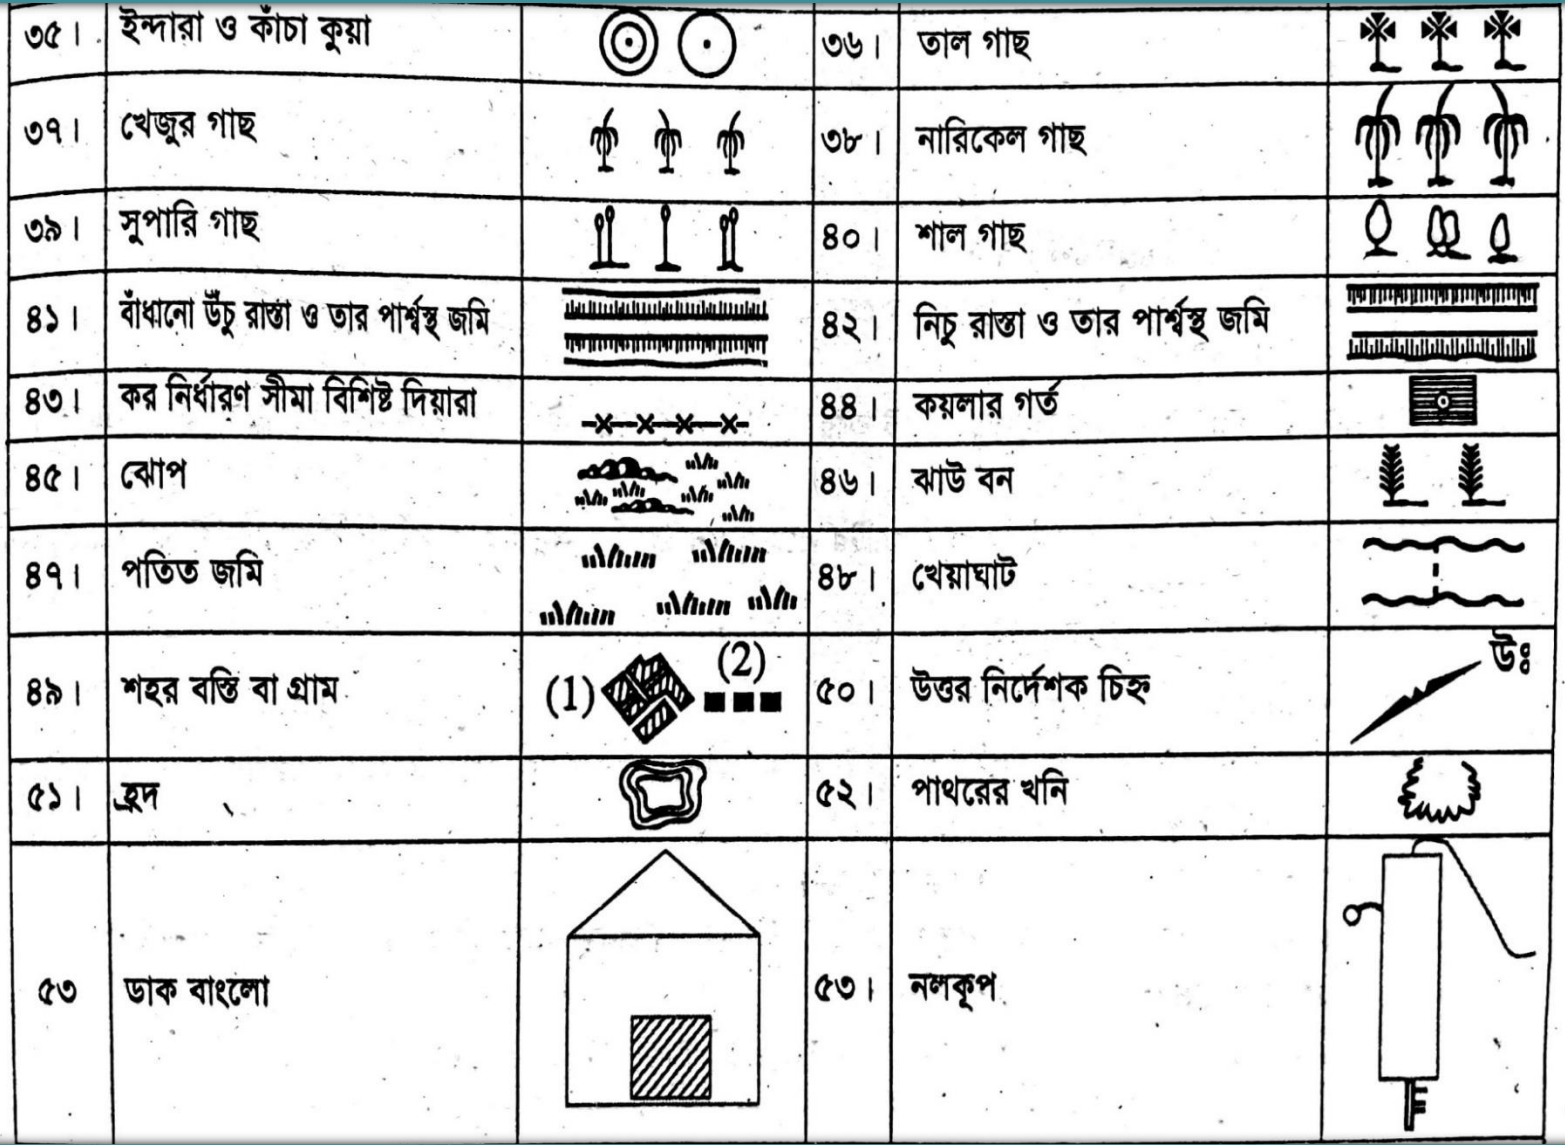 ৩৫। ইন্দারা ও কাঁচা কুয়া ৩৬। তাল গাছ
৩৭। খেজুর গাছ ৩৮। নারিকেল গাছ
৩৯। সুপারি গাছ ৪০। শাল গাছ
৪১। বাঁধানো উঁচু রাস্তা ও তার পার্শ্বস্থ জমি ৪২। নিচু রাস্তা ও তার পার্শ্বস্থ জমি
৪৩। কর নির্ধারণ সীমা বিশিষ্ট দিয়ারা ৪৪। কয়লার গর্ত
৪৫। ঝোপ ৪৬। ঝাউ বন
৪৭। পতিত জমি ৪৮। খেয়াঘাট
৪৯। শহর বস্তি বা গ্রাম (1) (2) ৫০। উত্তর নির্দেশক চিহ্ন উঃ
৫১। হ্রদ ৫২। পাথরের খনি
৫৩ ডাক বাংলো ৫৩। নলকূপ